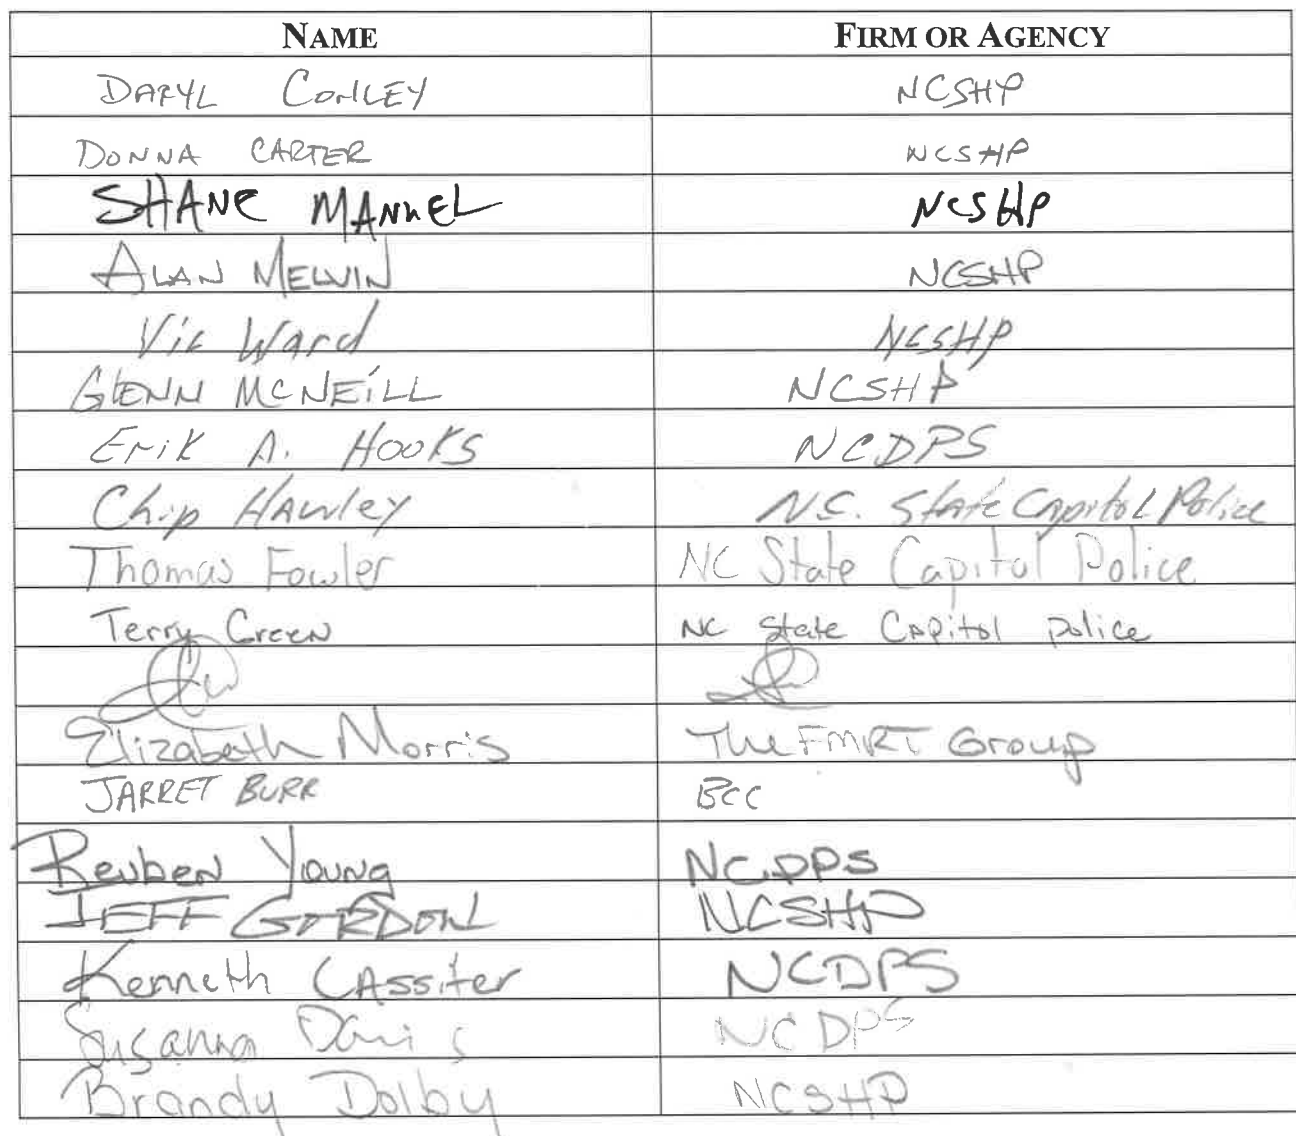 NAME FIRM OR AGENCY
DARYL CONLEY NCSHP
DONNA CARTER NCSHP
SHANE MANUEL NCSHP
ALAN MELVIN NCSHP
Vic Ward NCSHP
GLENN MCNEILL NCSHP
Erik A. HOOKS NCDPS
Chip HAWLEY N.C. State Capitol Police
Thomas Fowler NC State Capitol Police
Terry Green NC State Capitol police
Elizabeth Morris The FMRT Group
JARRET BURR BCC
Reuben Young NCDPS
JEFF GORDON NCSHP
Kenneth LASSiter NCDPS
Susanna Davis NCDPS
Brandy Dolby NCSHP